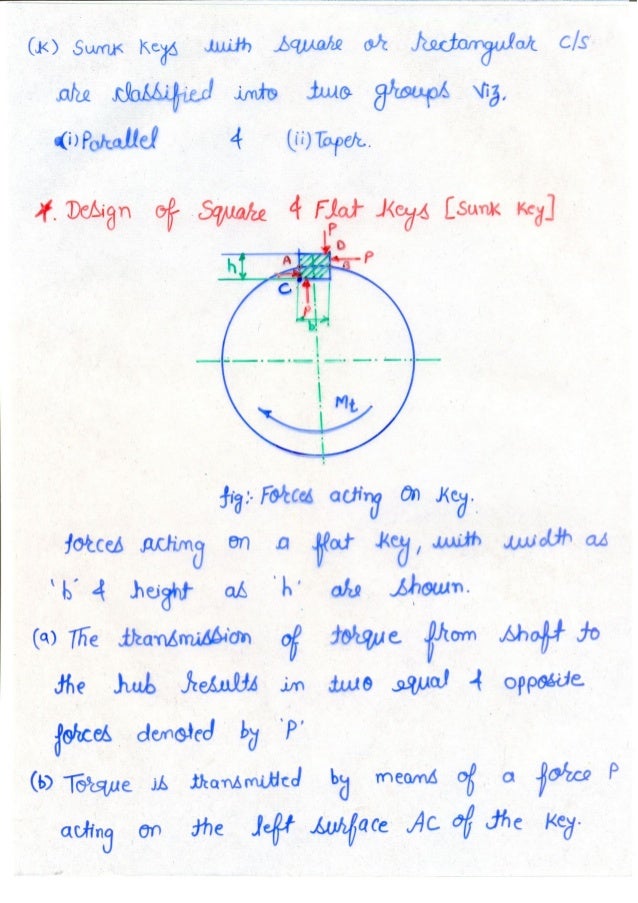 (K) Sunk Keys with square or rectangular c/s
are classified into two groups viz.
(i) Parallel & (ii) Taper.
*. Design of Square & Flat Keys [Sunk Key]
P
D
h
A
B
P
C
P
b
Mt
fig:- Forces acting on Key.
forces acting on a flat key, with width as
'b' & height as 'h' are shown.
(a) The transmission of torque from shaft to
the hub results in two equal & opposite
forces denoted by 'P'
(b) Torque is transmitted by means of a force P
acting on the left surface AC of the key.